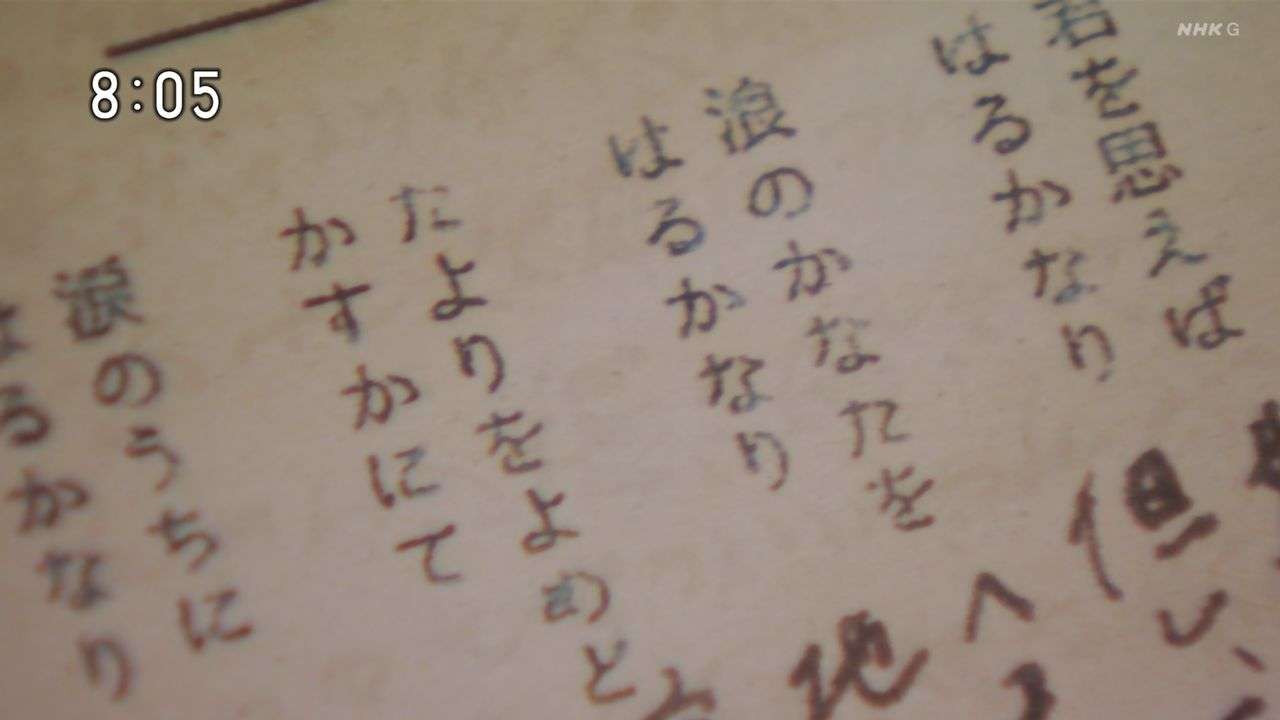 NHK G
8:05
君を思えば
はるかなり
浪のかなたを
はるかなり
たよりをよめど
かすかにて
涙のうちに
はるかなり
但し、
へ
地